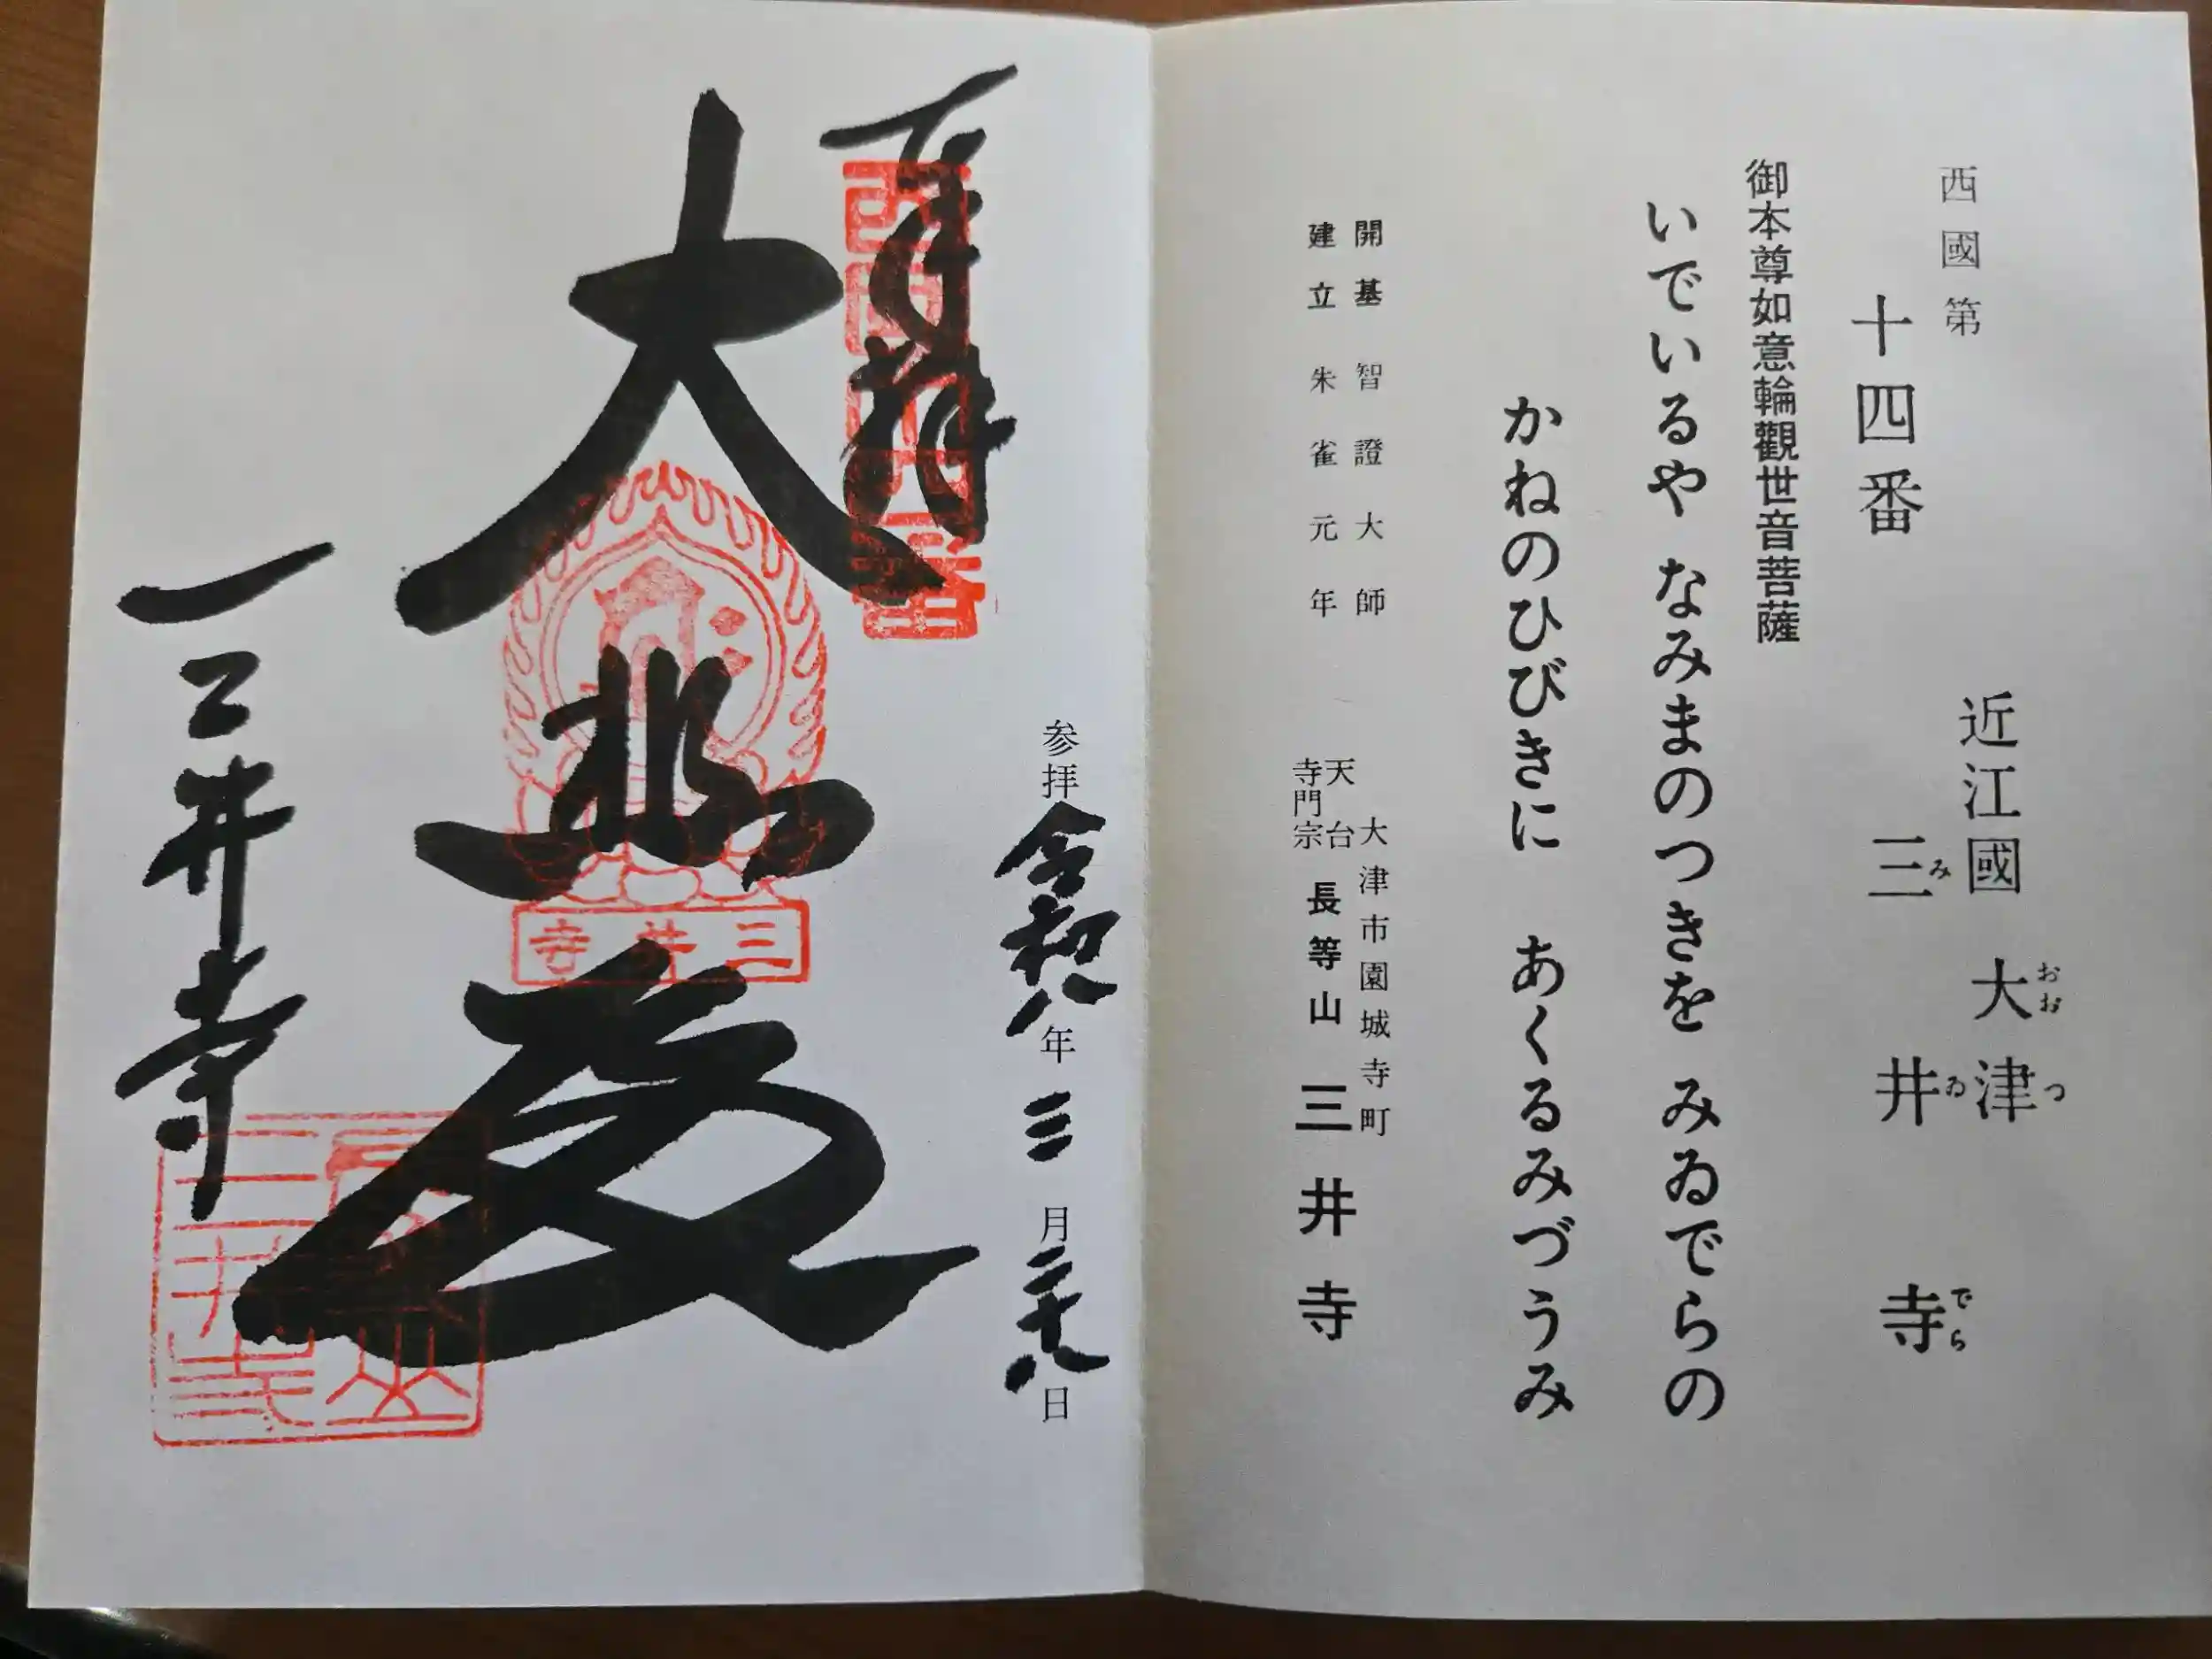 西國第
十四番
近江國 大津
おおつ
三井寺
みゐでら
御本尊如意輪觀世音菩薩
いでいるや なみまのつきを みゐでらの
かねのひびきに あくるみづうみ
開基 智證大師
建立 朱雀元年
大津市園城寺町
天台
寺門宗
長等山 三井寺
奉拝
参拝 令和八年 三月二十八日
大悲殿
三井寺
三井寺